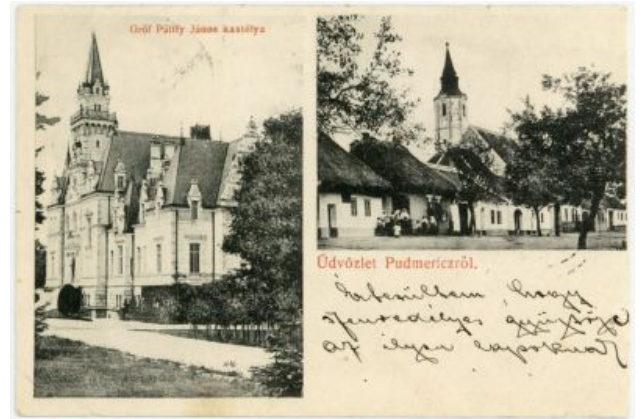 Gróf Pálffy János kastélya
Üdvözlet Pudmericzről.
Értesültem, hogy
szenvedélyes gyűjtője
az ilyen lapoknak